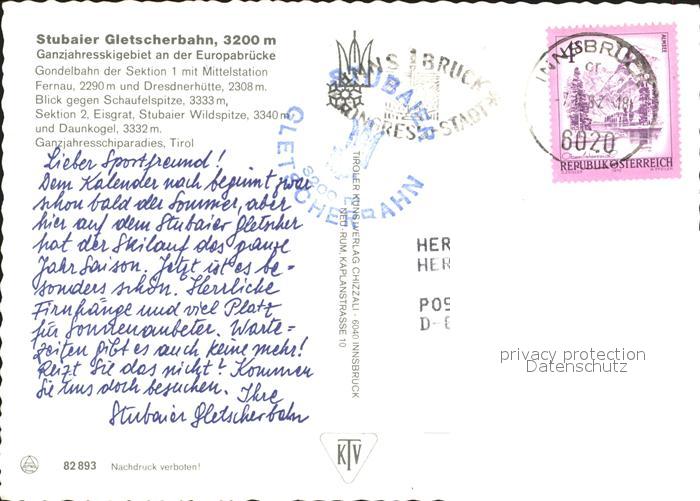 Stubaier Gletscherbahn, 3200 m
Ganzjahresskigebiet an der Europabrücke
Gondelbahn der Sektion 1 mit Mittelstation
Fernau, 2290 m und Dresdnerhütte, 2308 m.
Blick gegen Schaufelspitze, 3333 m,
Sektion 2, Eisgrat, Stubaier Wildspitze, 3340 m
und Daunkogel, 3332 m.
Ganzjahresschiparadies, Tirol
Lieber Sportfreund!
Dem Kalender nach beginnt zwar
schon bald der Sommer, aber
hier auf dem Stubaier Gletscher
hat der Skilauf das ganze
Jahr Saison. Jetzt ist es be-
sonders schön. Herrliche
Firnhänge und viel Platz
für Sonnenanbeter. Warte=
zeiten gibt es auch keine mehr!
Reizt Sie das nicht? Kommen
Sie uns doch besuchen. Ihre
Stubaier Gletscherbahn
82893 Nachdruck verboten!
INNSBRUCK
KONGRESS-STADT
STUBAIER
GLETSCHERBAHN
3200
TIROLER KUNSTVERLAG CHIZZALI - 6040 INNSBRUCK
NEU-RUM, KAPLANSTRASSE 10
KTV
INNSBRUCK
6020
ALMSEE
REPUBLIK ÖSTERREICH
HER
HER
POS
D-
privacy protection
Datenschutz